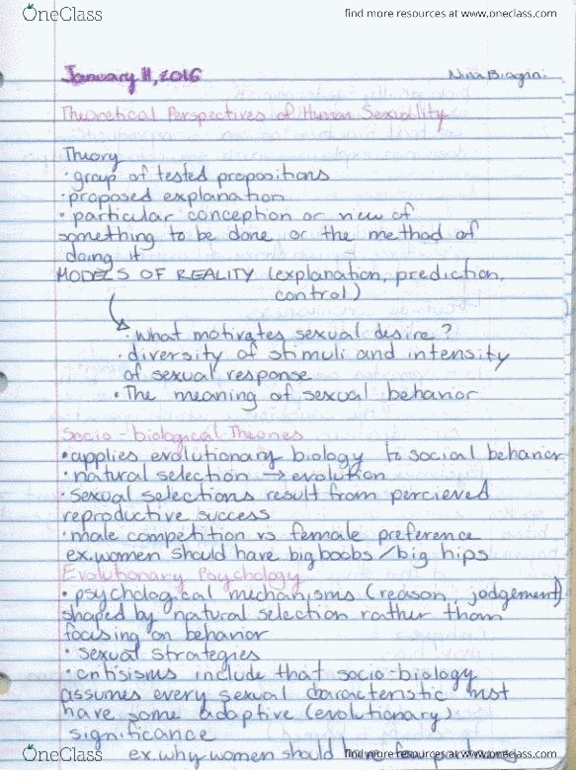 OneClass
find more resources at www.oneclass.com
January 11, 2016
Nina Biagini
Theoretical Perspectives of Human Sexuality
Theory
• group of tested propositions
• proposed explanation
• particular conception or view of
something to be done or the method of
doing it
MODELS OF REALITY (explanation, prediction,
control)
• what motivates sexual desire?
• diversity of stimuli and intensity
of sexual response
• The meaning of sexual behavior
Socio-biological Theories
• applies evolutionary biology to social behavior
• natural selection → evolution
• sexual selections result from percieved
reproductive success
• male competition vs female preference
ex. women should have big boobs/big hips
Evolutionary Psychology
• psychological mechanisms (reason, judgement)
shaped by natural selection rather than
focusing on behavior
• sexual strategies
• critisisms include that socio-biology
assumes every sexual characteristic must
have some adaptive (evolutionary)
significance
ex. why women should
OneClass
find more resources at www.oneclass.com